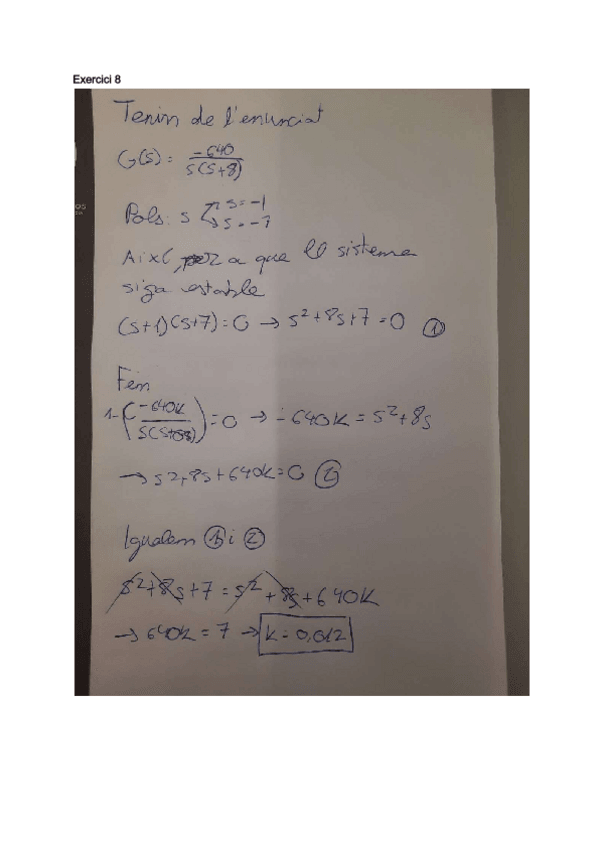 Exercici 8
Tenim de l'enunciat
G(s) = -640 / s(s+8)
Pols: s → s = -1
→ s = -7
Així, per a que lo sistema
siga estable
(s+1)(s+7) = 0 → s²+8s+7 = 0 ①
Fem
1-(-640k / s(s+8)) = 0 → -640k = s²+8s
→ s²+8s+640k = 0 ②
Igualem ① i ②
s²+8s+7 = s²+8s+640k
→ 640k = 7 → k = 0,012